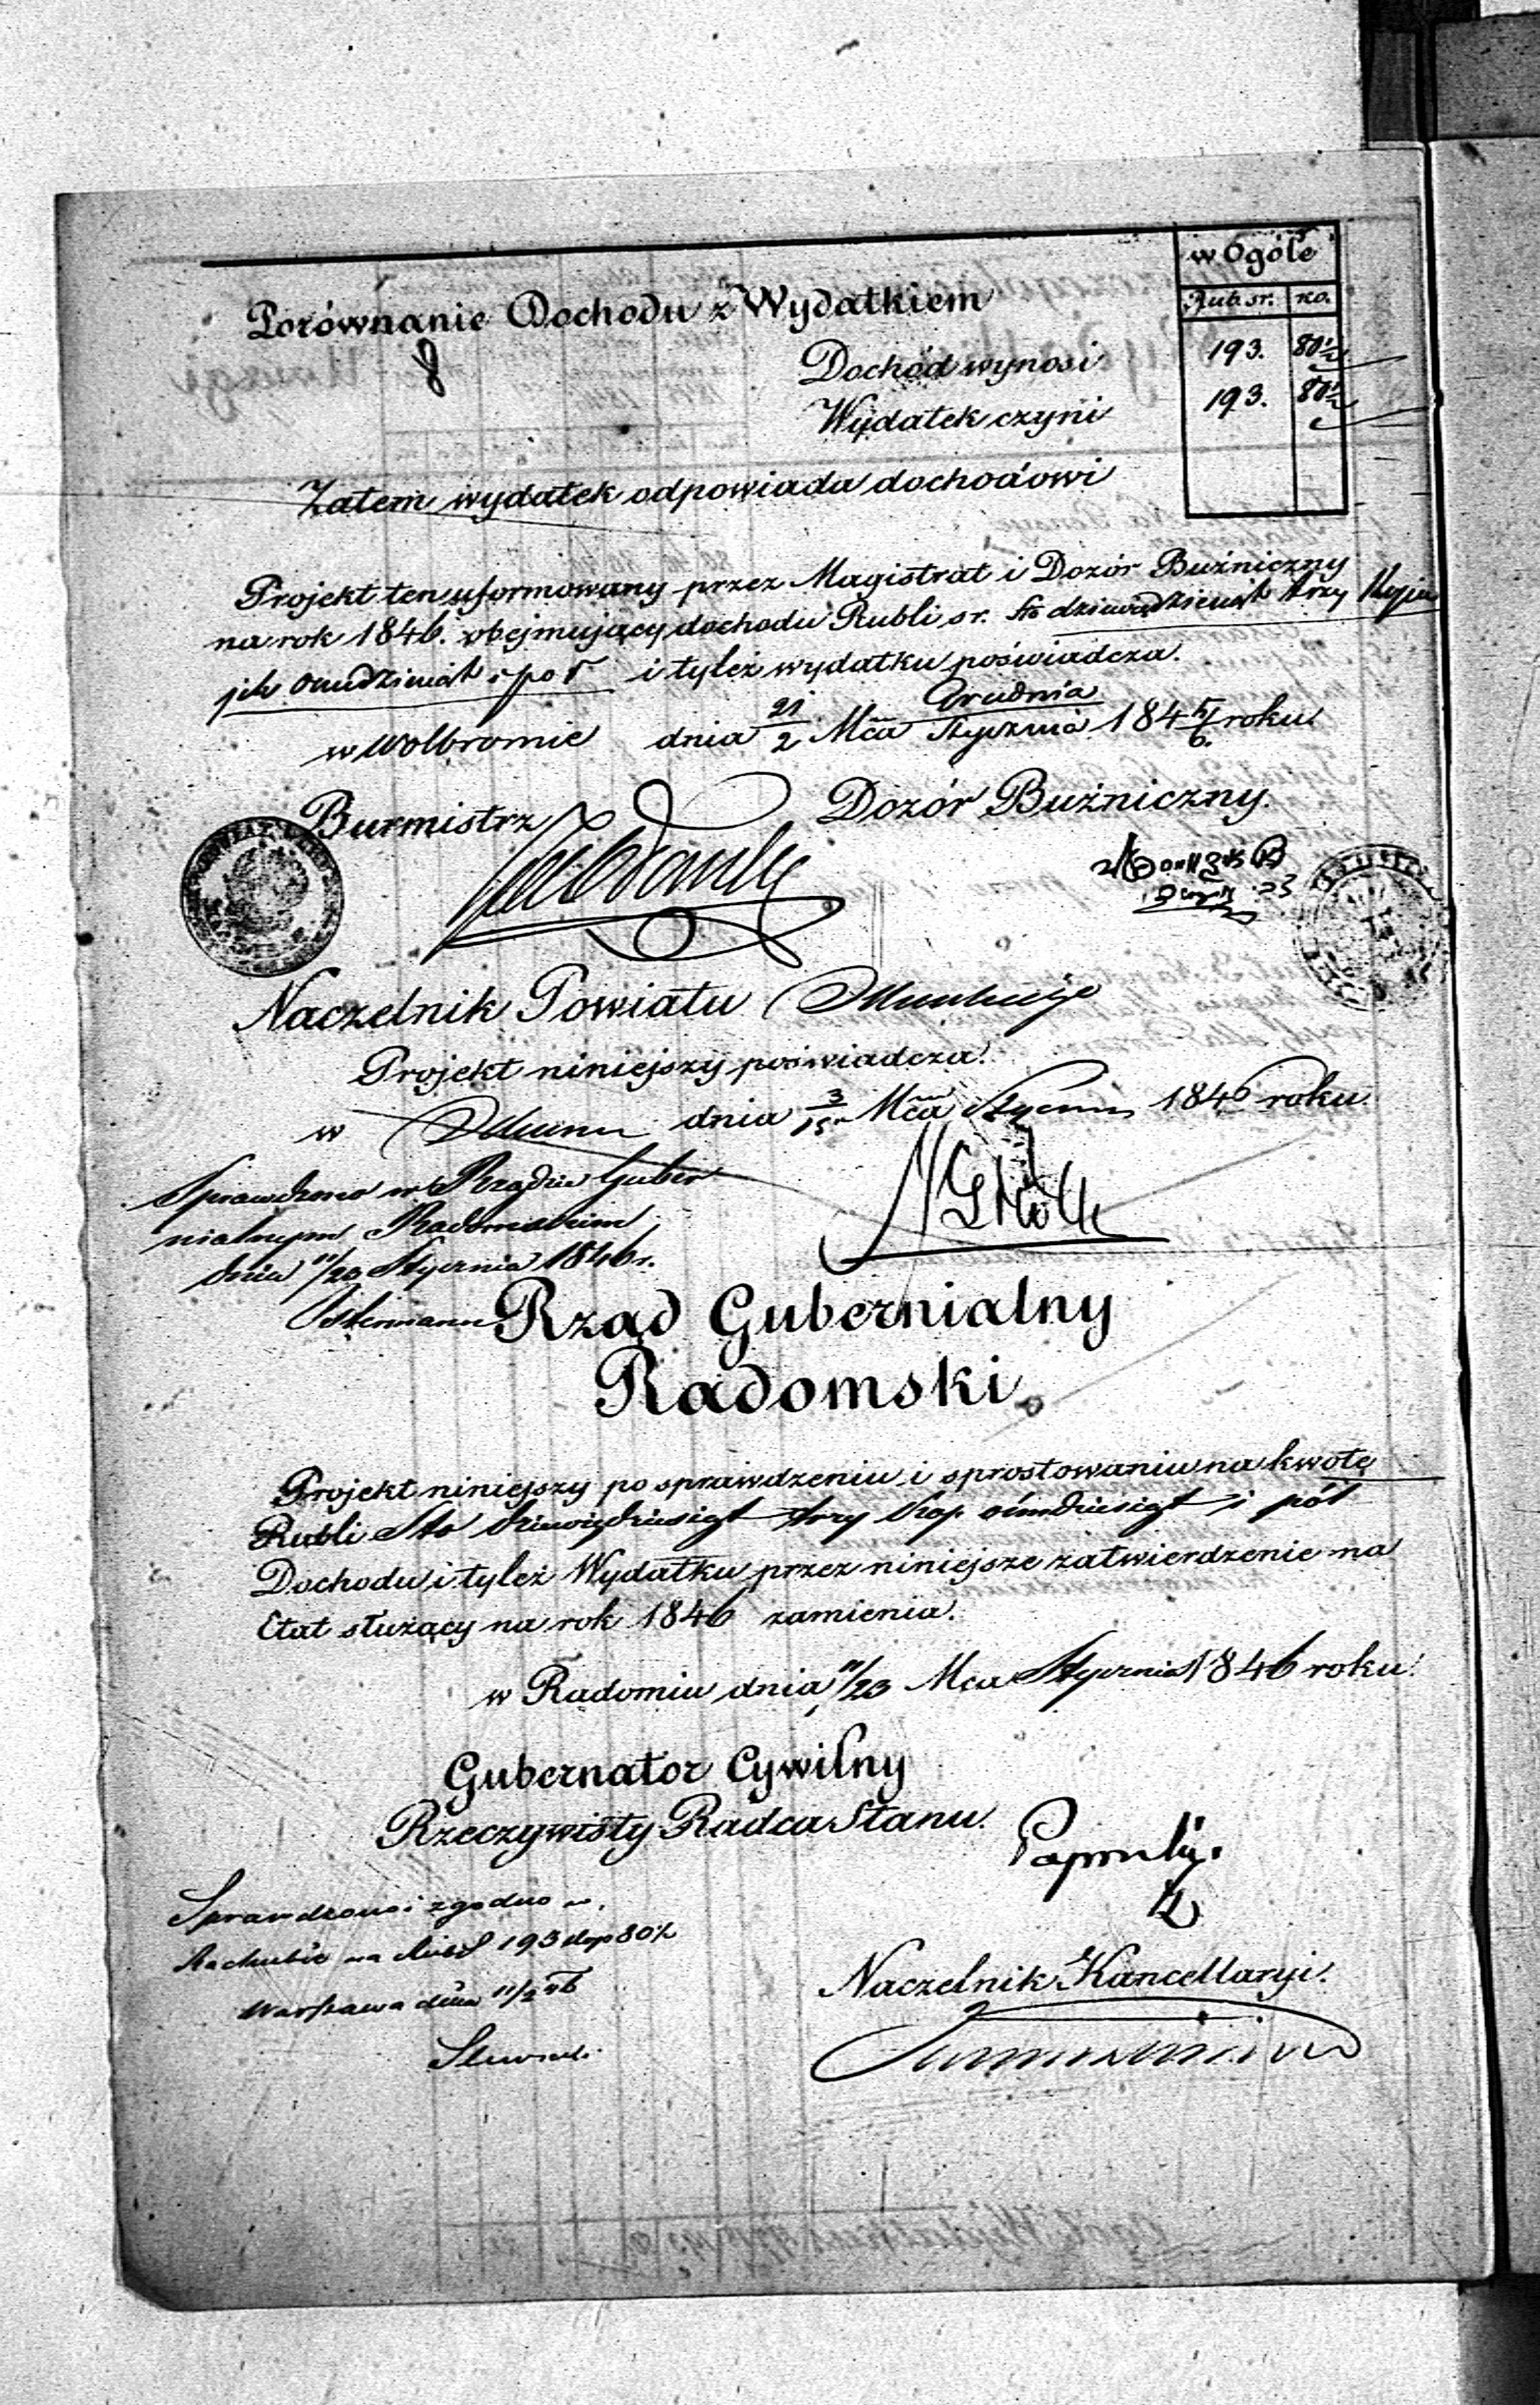 w Ogóle
Rub. sr. ko.
Porównanie Dochodu z Wydatkiem
Dochód wynosi 193. 80½
Wydatek czyni 193. 80½
Zatem wydatek odpowiada dochodowi
Projekt ten uformowany przez Magistrat i Dozór Buźniczny
na rok 1846. obejmujący dochodu Rubli sr. Sto dziewiędziesiąt trzy
i tyleż wydatku poświadcza.
Grudnia
w Wolbromie dnia 21/2 Mca Stycznia 184 5/6 roku
Burmistrz Dozór Buźniczny.
Naczelnik Powiatu
Projekt niniejszy poświadcza.
w dnia 3/15 Mca Stycznia 1846 roku
Sprawdzono w Rządzie Guber
nialnym Radomskim
dnia 11/23 Stycznia 1846 r.
Rząd Gubernialny
Radomski
Projekt niniejszy po sprawdzeniu i sprostowaniu na kwotę
Rubli Sto dziewiędziesiąt trzy kop. ośmdziesiąt i pół
Dochodu i tyleż Wydatku przez niniejsze zatwierdzenie na
Etat służący na rok 1846 zamienia.
w Radomiu dnia 11/23 Mca Stycznia 1846 roku.
Gubernator Cywilny
Rzeczywisty Radca Stanu.
Sprawdzono i zgodno w
Rachubie na 193 kop 80½
Warszawa dnia
Naczelnik Kancellaryi.